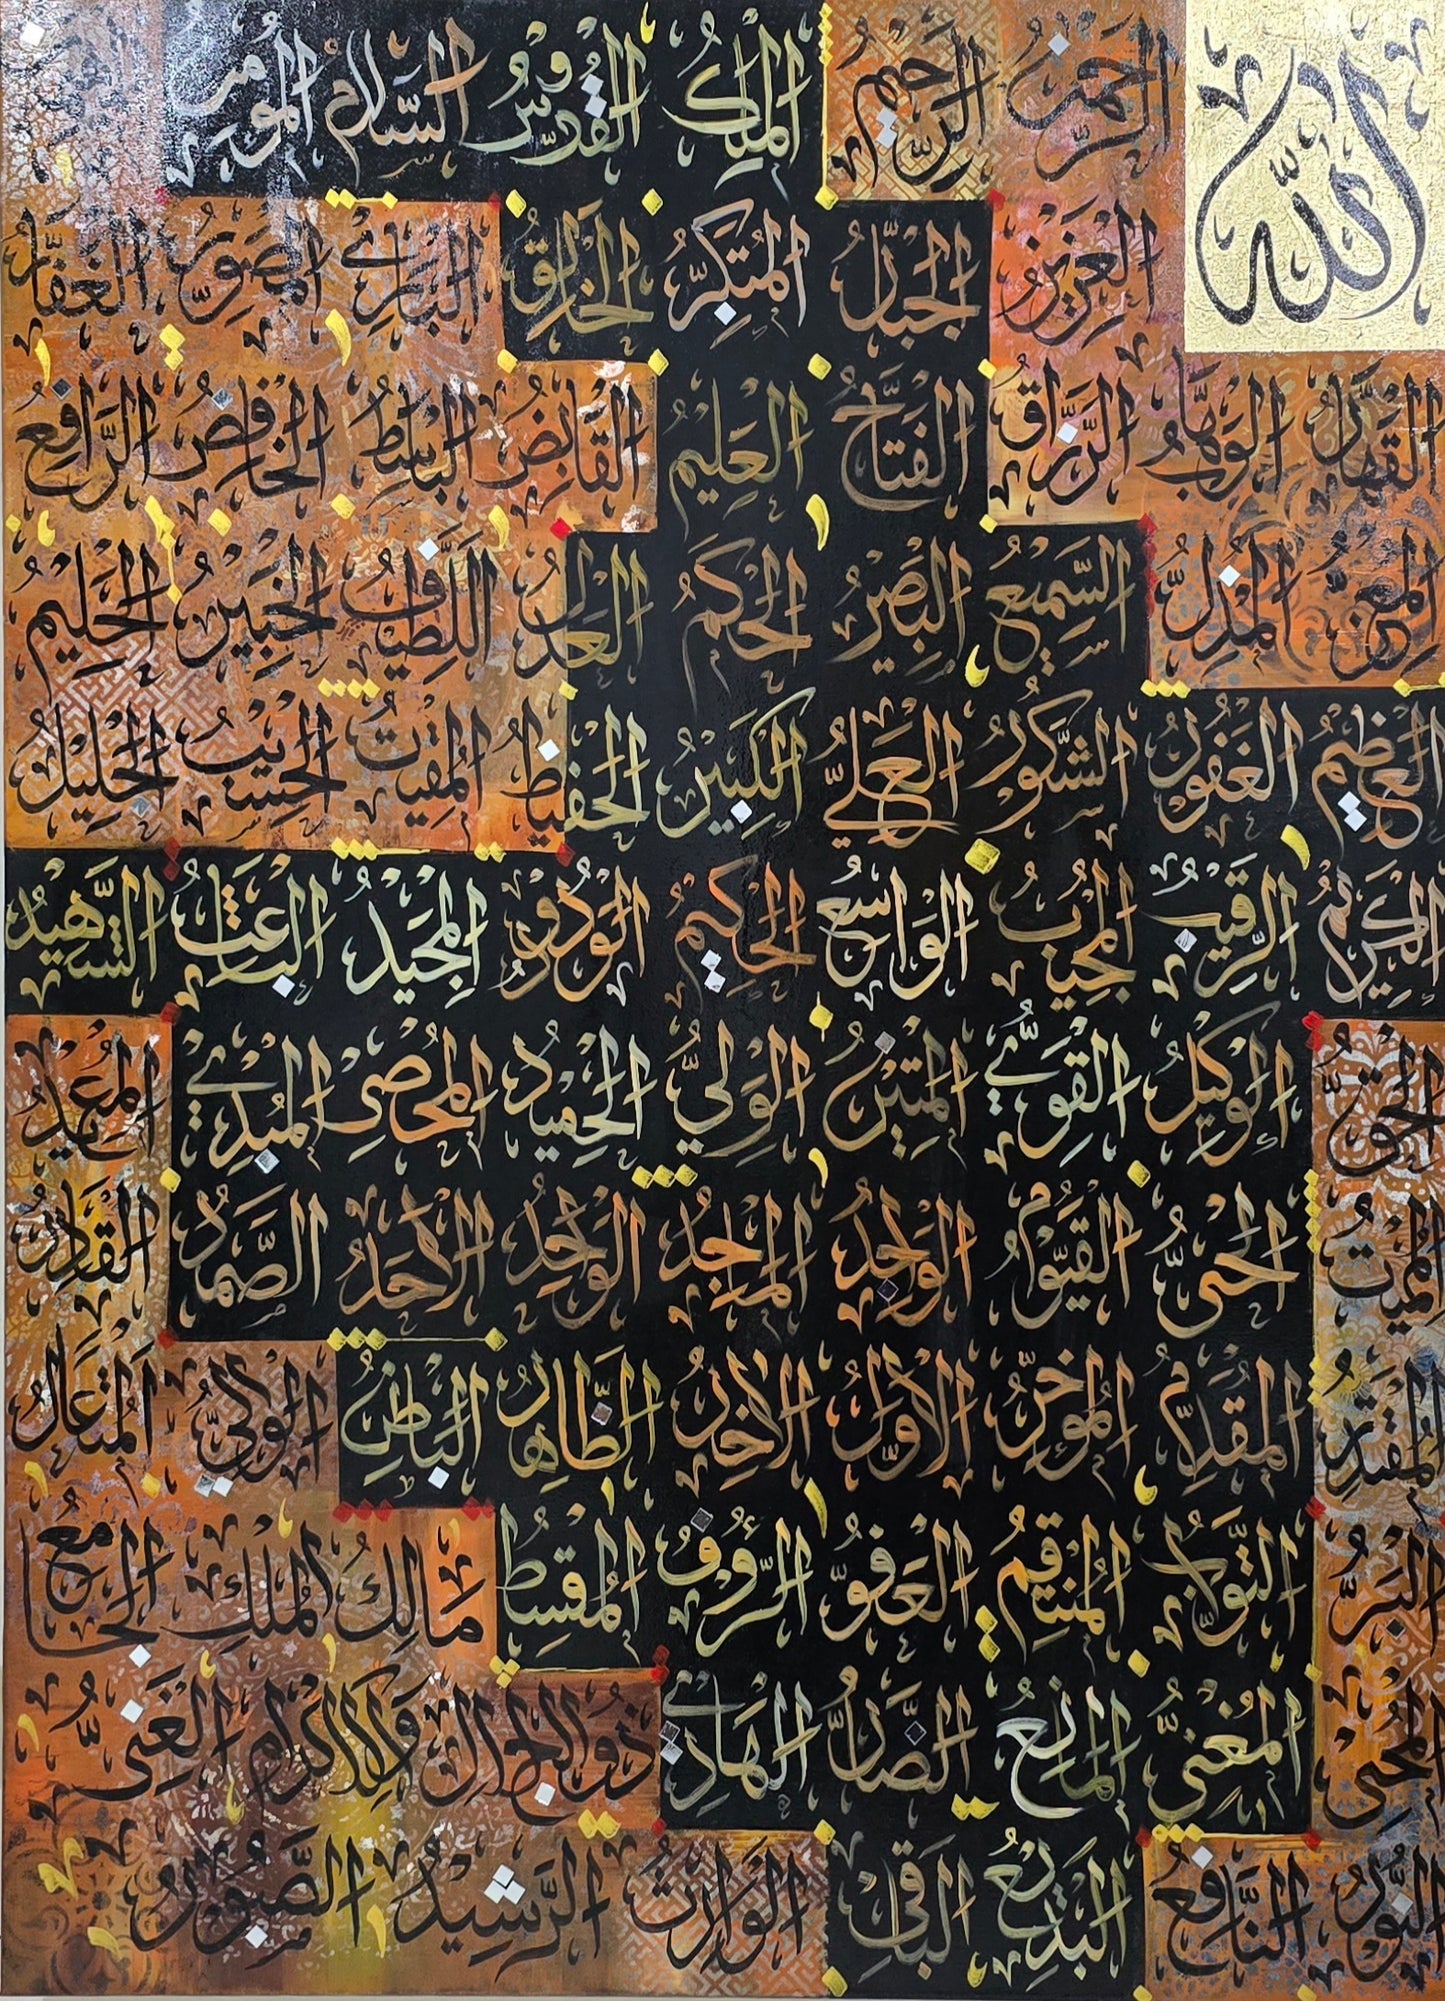 الله الرحمن الرحيم الملك القدوس السلام المؤمن
العزيز الجبار المتكبر الخالق البارئ المصور الغفار
القهار الوهاب الرزاق الفتاح العليم القابض الباسط الخافض الرافع
المعز المذل السميع البصير الحكم العدل اللطيف الخبير الحليم
العظيم الغفور الشكور العلي الكبير الحفيظ المقيت الحسيب الجليل
الكريم الرقيب المجيب الواسع الحكيم الودود المجيد الباعث الشهيد
الحق الوكيل القوي المتين الولي الحميد المحصى المبدئ المعيد
المميت الحى القيوم الواجد الماجد الواحد الاحد الصمد القادر
المقتدر المقدم المؤخر الاول الاخر الظاهر الباطن الوالي المتعال
البر التواب المنتقم العفو الرؤوف المقسط مالك الملك الجامع
المحيى المغني المانع الضار الهادي ذوالجلال والاكرام الغنى
النور النافع البديع الباقي الوارث الرشيد الصبور